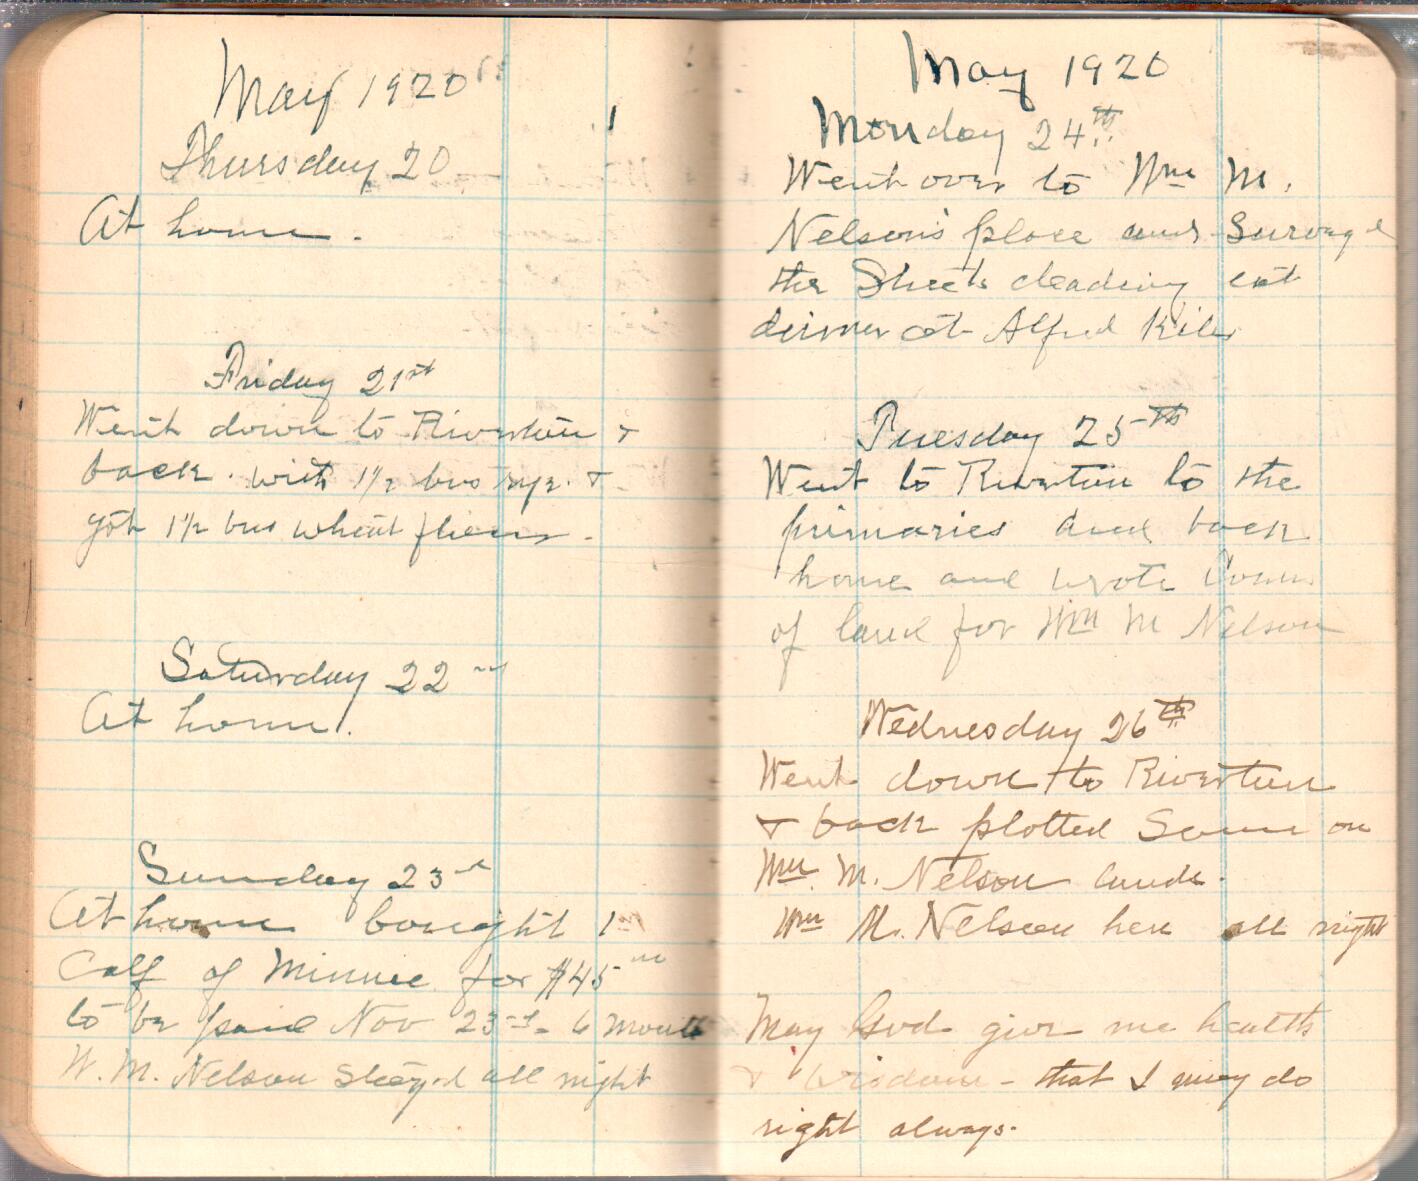 May 1920
Thursday 20
At home.
Friday 21st
Went down to Riverton &
back. with 1½ bus rye. &
got 1½ bus wheat flour.
Saturday 22nd
At home.
Sunday 23rd
At home bought 1
Calf of Minnie for $45
to be paid Nov 23rd - 6 Months
W. M. Nelson Stayed all night
May 1920
Monday 24th
Went over to Wm M.
Nelson's place and Survayd
the Sheets deading eat
dinner at Alfred Kiles
Tuesday 25th
Went to Riverton to the
primaries and back
home and wrote
of land for Wm M Nelson
Wednesday 26th
Went down to Riverton
& back plotted Some on
Wm. M. Nelson lands.
Wm M. Nelson here all night
May God give me health
& Wisdom - that I may do
right always.